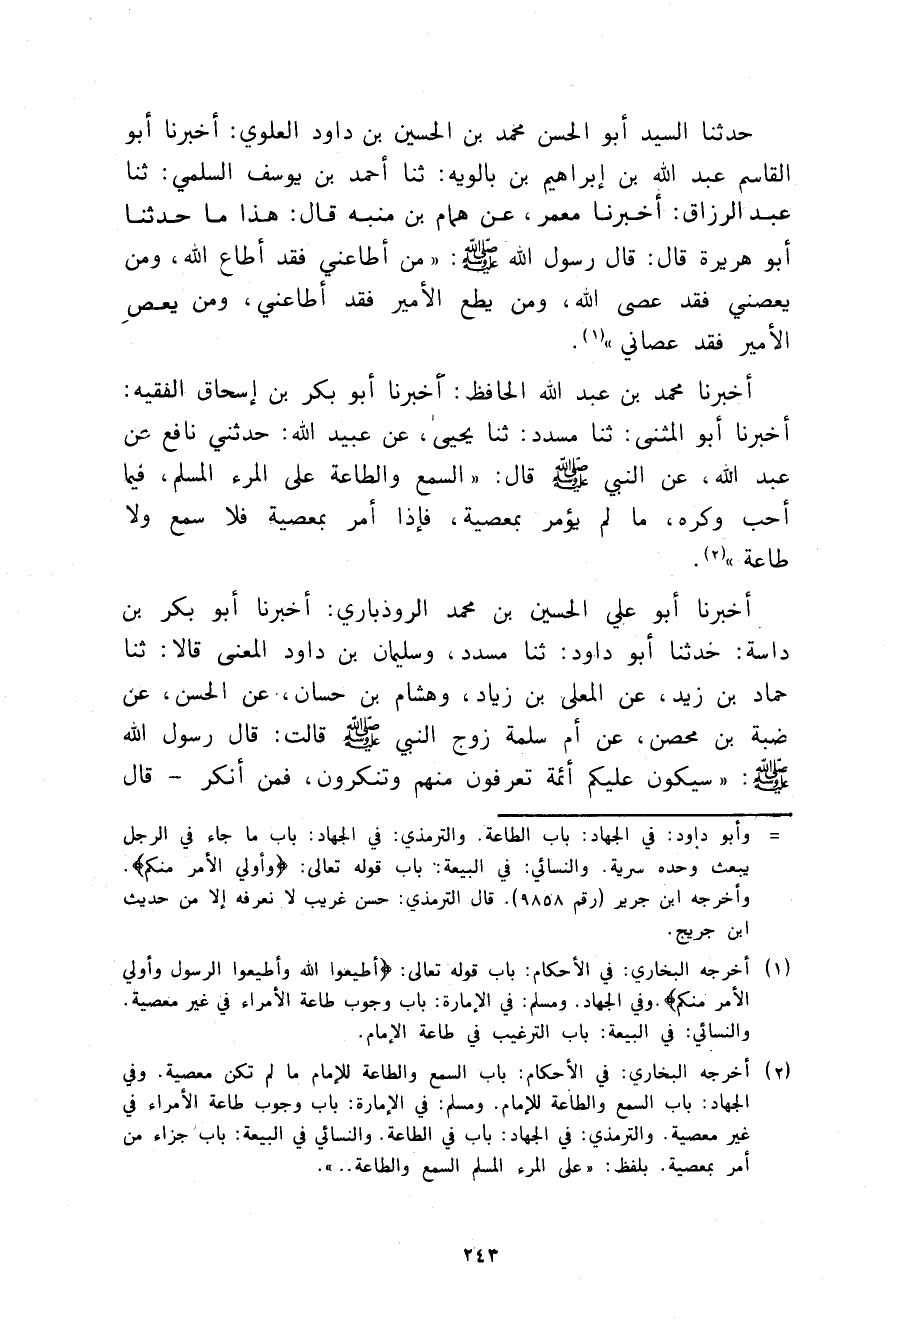 حدثنا السيد أبو الحسن محمد بن الحسين بن داود العلوي: أخبرنا أبو
القاسم عبد الله بن إبراهيم بن بالويه: ثنا أحمد بن يوسف السلمي: ثنا
عبد الرزاق: أخبرنا معمر، عن همام بن منبه قال: هذا ما حدثنا
أبو هريرة قال: قال رسول الله ﷺ: «من أطاعني فقد أطاع الله، ومن
يعصني فقد عصى الله، ومن يطع الأمير فقد أطاعني، ومن يعص
الأمير فقد عصاني»(١).
أخبرنا محمد بن عبد الله الحافظ: أخبرنا أبو بكر بن إسحاق الفقيه:
أخبرنا أبو المثنى: ثنا مسدد: ثنا يحيى، عن عبيد الله: حدثني نافع عن
عبد الله، عن النبي ﷺ قال: «السمع والطاعة على المرء المسلم، فيما
أحب وكره، ما لم يؤمر بمعصية، فإذا أمر بمعصية فلا سمع ولا
طاعة»(٢).
أخبرنا أبو علي الحسين بن محمد الروذباري: أخبرنا أبو بكر بن
داسة: حدثنا أبو داود: ثنا مسدد، وسليمان بن داود المعنى قالا: ثنا
حماد بن زيد، عن المعلى بن زياد، وهشام بن حسان، عن الحسن، عن
ضبة بن محصن، عن أم سلمة زوج النبي ﷺ قالت: قال رسول الله
ﷺ: «سيكون عليكم أئمة تعرفون منهم وتنكرون، فمن أنكر – قال
= وأبو داود: في الجهاد: باب الطاعة. والترمذي: في الجهاد: باب ما جاء في الرجل
يبعث وحده سرية. والنسائي: في البيعة: باب قوله تعالى: ﴿وأولي الأمر منكم﴾.
وأخرجه ابن جرير (رقم ٩٨٥٨). قال الترمذي: حسن غريب لا نعرفه إلا من حديث
ابن جريج.
(١) أخرجه البخاري: في الأحكام: باب قوله تعالى: ﴿أطيعوا الله وأطيعوا الرسول وأولي
الأمر منكم﴾. وفي الجهاد. ومسلم: في الإمارة: باب وجوب طاعة الأمراء في غير معصية.
والنسائي: في البيعة: باب الترغيب في طاعة الإمام.
(٢) أخرجه البخاري: في الأحكام: باب السمع والطاعة للإمام ما لم تكن معصية. وفي
الجهاد: باب السمع والطاعة للإمام. ومسلم: في الإمارة: باب وجوب طاعة الأمراء في
غير معصية. والترمذي: في الجهاد: باب في الطاعة. والنسائي في البيعة: باب جزاء من
أمر بمعصية. بلفظ: «على المرء المسلم السمع والطاعة..».
٢٤٣